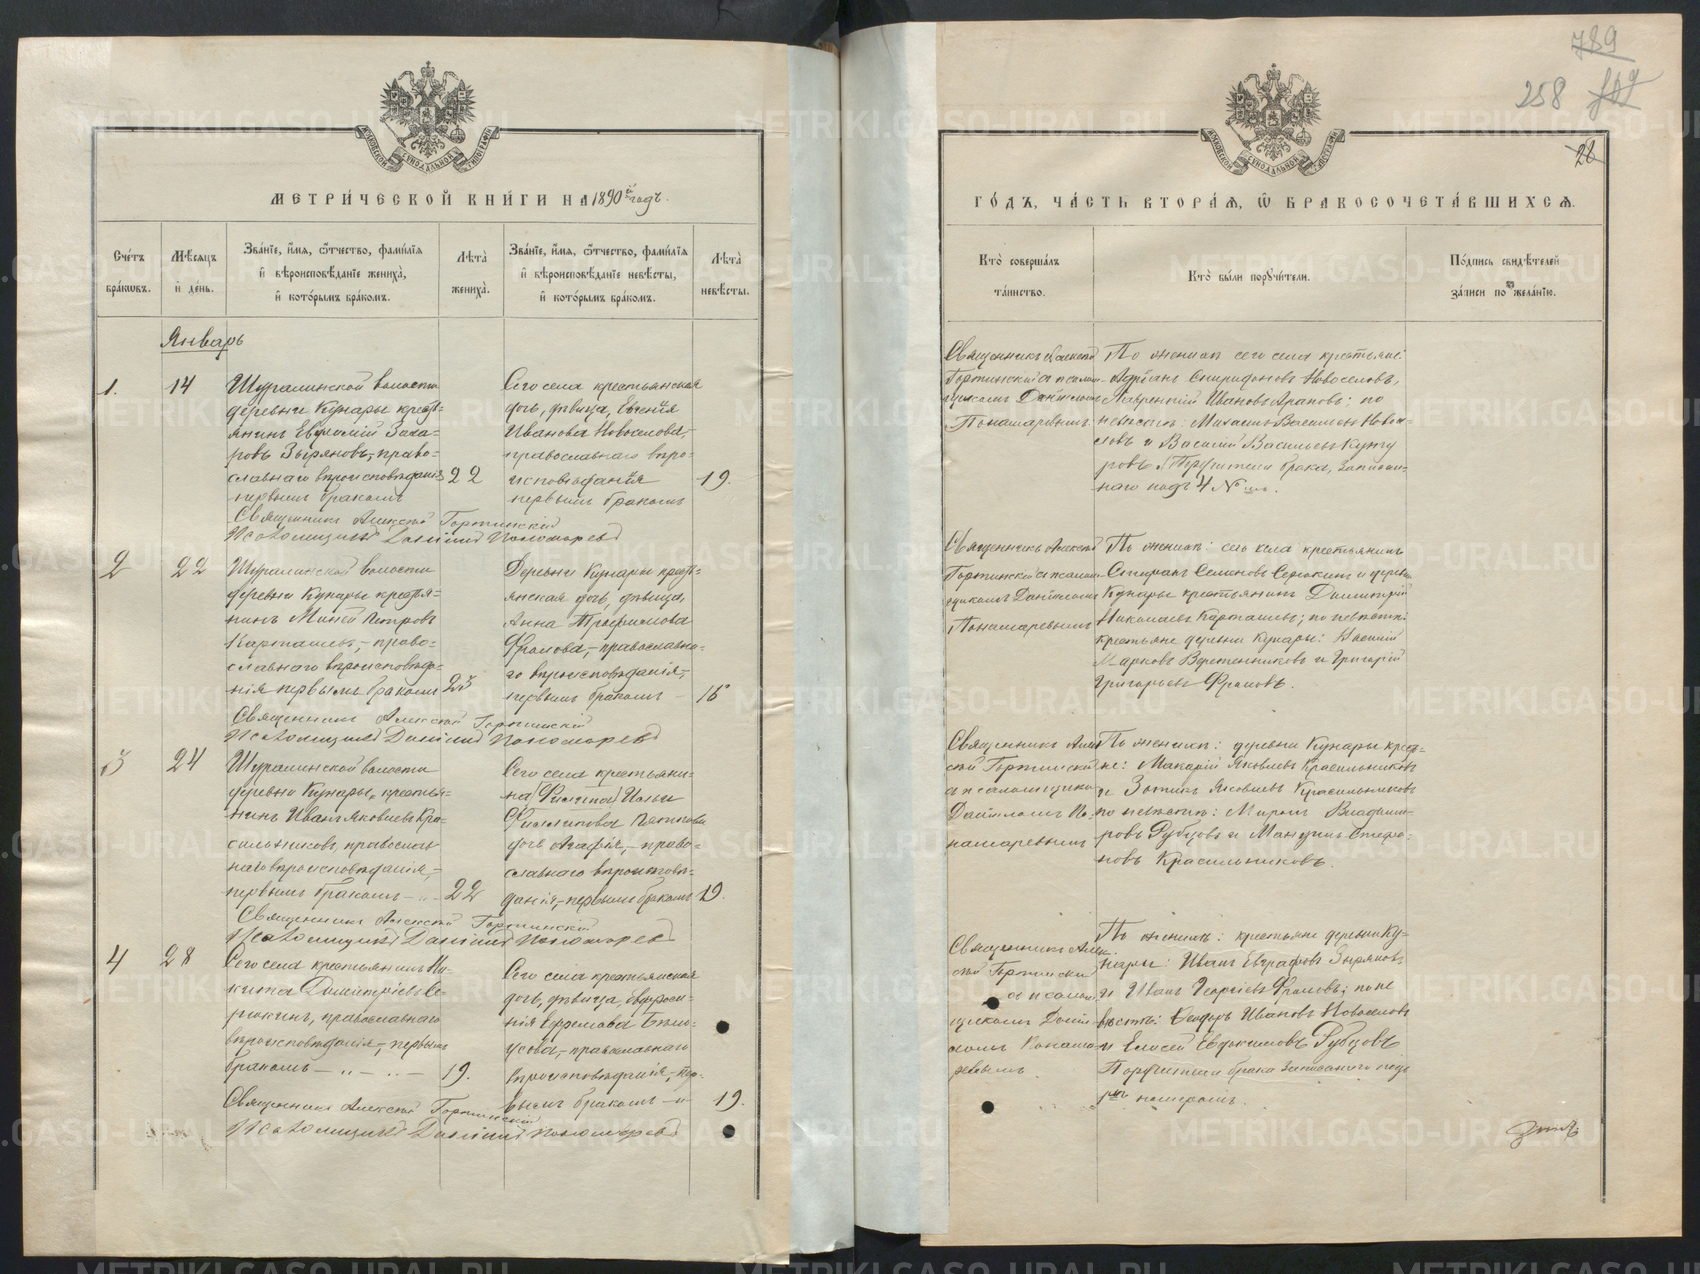 789
258
28
МЕТРИ́ЧЕСКОЙ КНИ́ГИ НА 1890й годъ.
Сче́тъ бра́ковъ.
Мѣ́сяцъ и҆ де́нь.
Зва́нїе, и҆́мѧ, ѻ҆́тчество, фами́лїѧ
и҆ вѣроисповѣ́данїе жениха̀,
и҆ кото́рымъ бра́комъ.
Лѣта̀ жениха̀.
Зва́нїе, и҆́мѧ, ѻ҆́тчество, фами́лїѧ
и҆ вѣроисповѣ́данїе невѣ́сты,
и҆ кото́рымъ бра́комъ.
Лѣта̀ невѣ́сты.
Январь
1.
14
Шуралинской волости
деревни Кунары кресть-
янинъ Евфимій Заха-
ровъ Зыряновъ, право-
славнаго вѣроисповѣданія
первымъ бракомъ
22
Сего села крестьянская
дочь, дѣвица, Евгенія
Иванова Новоселова,
православнаго вѣро-
исповѣданія
первымъ бракомъ
19.
Священникъ Алексѣй Гортинскій
Псаломщикъ Даніилъ Пономаревъ
2
22
Шуралинской волости
деревни Кунары кресть-
нинъ Миней Петровъ
Карташевъ, право-
славнаго вѣроисповѣда-
нія первымъ бракомъ
23
Деревни Кунары кресть-
янская дочь, дѣвица,
Анна Трофимова
Фролова, православна-
го вѣроисповѣданія,
первымъ бракомъ
18
Священникъ Алексѣй Гортинскій
Псаломщикъ Даніилъ Пономаревъ
3
24
Шуралинской волости
деревни Кунары, крестья-
нинъ Иванъ Яковлевъ Кра-
сильниковъ, православ-
наго вѣроисповѣданія,
первымъ бракомъ
22
Сего села крестьяни-
на Филиппа Ильи
Филиппова Пяткова
дочь Агафія, право-
славнаго вѣроисповѣ-
данія, первымъ бракомъ
19.
Священникъ Алексѣй Гортинскій
Псаломщикъ Даніилъ Пономаревъ
4
28
Сего села крестьянинъ Ни-
кита Димитріевъ Се-
рюкинъ, православнаго
вѣроисповѣданія, первымъ
бракомъ
19.
Сего села крестьянская
дочь, дѣвица, Евфроси-
нія Ефремова Бѣло-
усова, православнаго
вѣроисповѣданія, пер-
вымъ бракомъ
19.
Священникъ Алексѣй Гортинскій
Псаломщикъ Даніилъ Пономаревъ
ГО́ДЪ, ЧА́СТЬ ВТОРА́Ѧ, Ѽ БРАКОСОЧЕТА́ВШИХСѦ.
Кто̀ соверша́лъ
та́инство.
Кто̀ бы́ли порꙋчи́тели.
По́дпись свидѣ́телей
за́писи по жела́нїю.
Священникъ Алексѣй
Гортинскій съ псалом-
щикомъ Даніиломъ
Пономаревымъ
По женихѣ сего села крестьяне:
Адріанъ Спиридоновъ Новоселовъ,
Лаврентій Ивановъ Араповъ; по
невѣстѣ: Михаилъ Васильевъ Новосе-
ловъ и Василій Васильевъ Кунгу
ровъ. Поручители брака, записан-
наго подъ 4 №мъ.
Священникъ Алексѣй
Гортинскій съ псалом-
щикомъ Даніиломъ
Пономаревымъ
По женихѣ: сего села крестьянинъ
Спиранъ Семеновъ Серюкинъ и деревни
Кунары крестьянинъ Димитрій
Николаевъ Карташевъ; по невѣстѣ:
крестьяне деревни Кунары: Василій
Марковъ Веретенниковъ и Григорій
Григорьевъ Фроловъ.
Священникъ Алек-
сѣй Гортинскій
съ псаломщикомъ
Даніиломъ По-
намаревымъ
По женихѣ: деревни Кунары кресть-
не: Макарій Яковлевъ Красильниковъ
и Зотикъ Яковлевъ Красильниковъ
по невѣстѣ: Миронъ Владими-
ровъ Рубцовъ и Мануилъ Стефа-
новъ Красильниковъ.
Священникъ Алек-
сѣй Гортинскій
съ псалом-
щикомъ Дані-
иломъ Понама-
ревымъ
По женихѣ: крестьяне деревни Ку-
нары: Иванъ Евграфовъ Зыряновъ,
и Иванъ Георгіевъ Фроловъ; по не
вѣстѣ: Ѳеодоръ Ивановъ Новоселовъ
и Елисей Евфимовъ Рубцовъ
Поручители брака записаннаго подъ
1мъ номеромъ.
METRIKI.GASO-URAL.RU